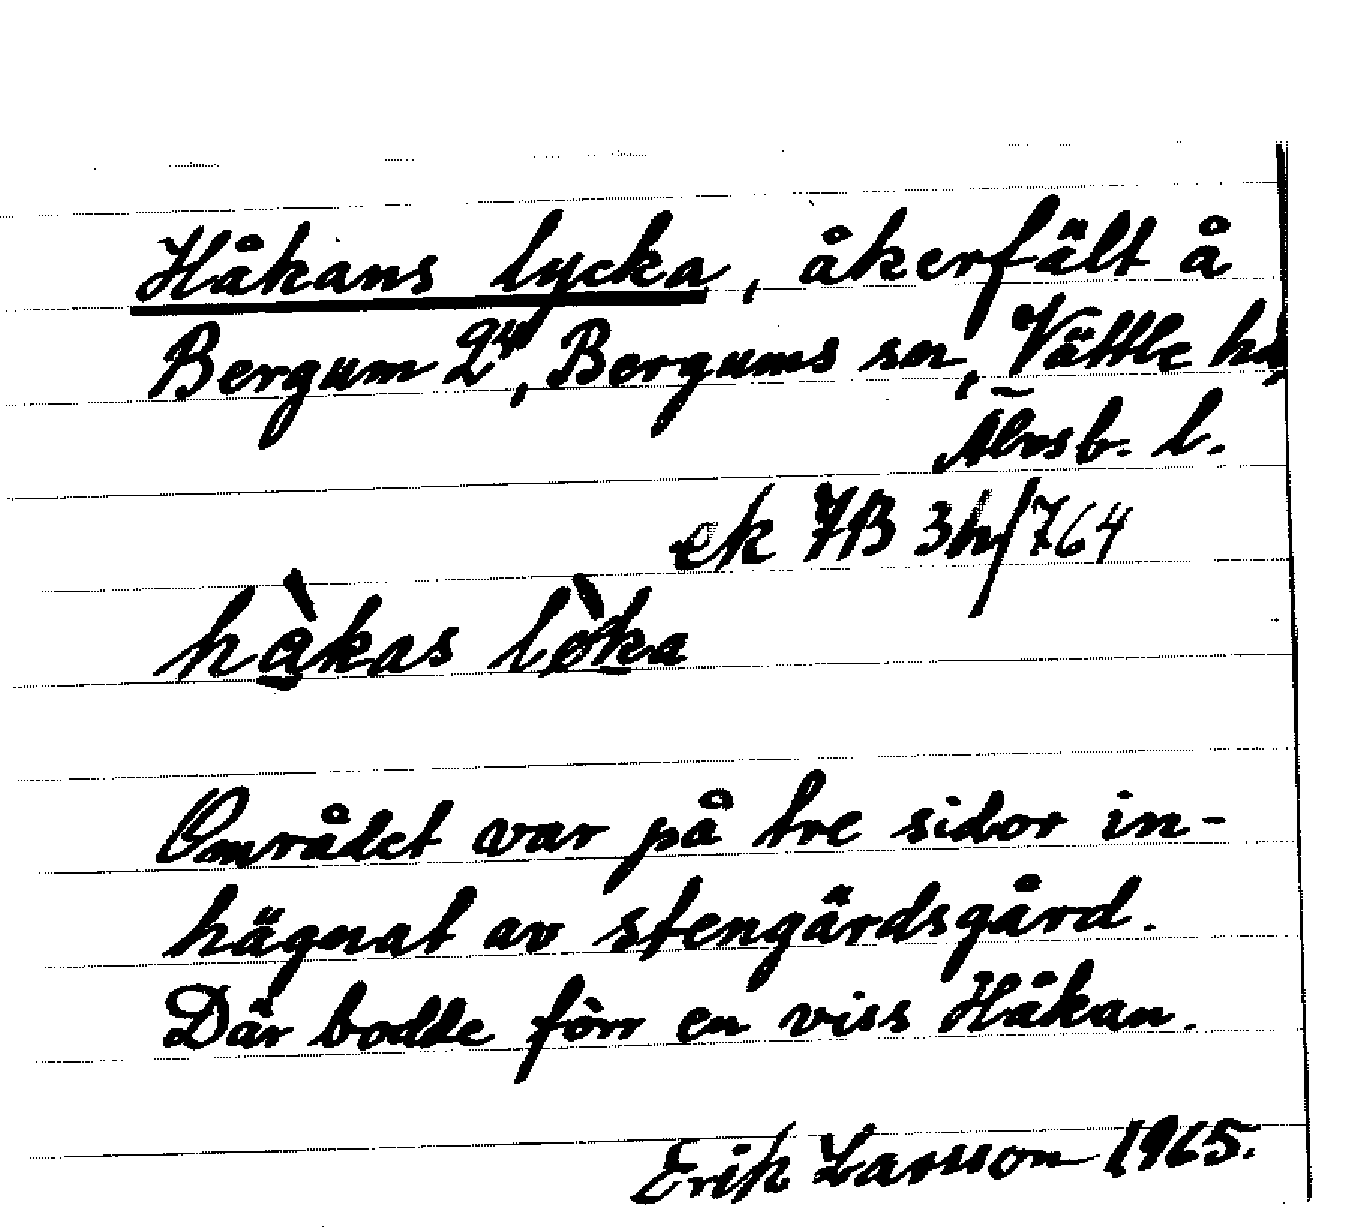 Håkans lycka, åkerfält å
Bergum 2⁴, Bergums sn, Vättle hd,
Älvsb. l.
ek 7B 3h/764
hàkas lòka
Området var på tre sidor in-
hägnat av stengärdsgård.
Där bodde förr en viss Håkan.
Erik Larsson 1965.